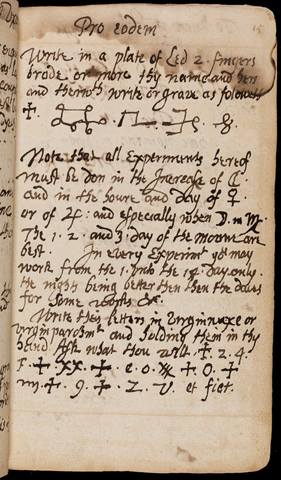 Pro eodem
15
Write in a plate of Led 2. fingers
brode or more thy name and hers
and therwth write or grave as followeth
✝.
Note that all Experiments hereof
must be don in the Increase of ☾.
and in the houre and day of ♀.
or of ♃. and especially when D. in ♏.
The 1. 2. and 3. day of the moone are
best. In every Experimt yo may
work from the 1. unto the 14. day only.
the night being better then then the daies
for some respects &c.
Write thes letters in virgin waxe or
virgin parchmt and holding them in thy
hand Ask what thou wilt. ✝. 2. 4.
F. ✝. XX. ✝. e. o. ✝ O. ✝
m. ✝. 9. ✝. 2. V. et fiet.